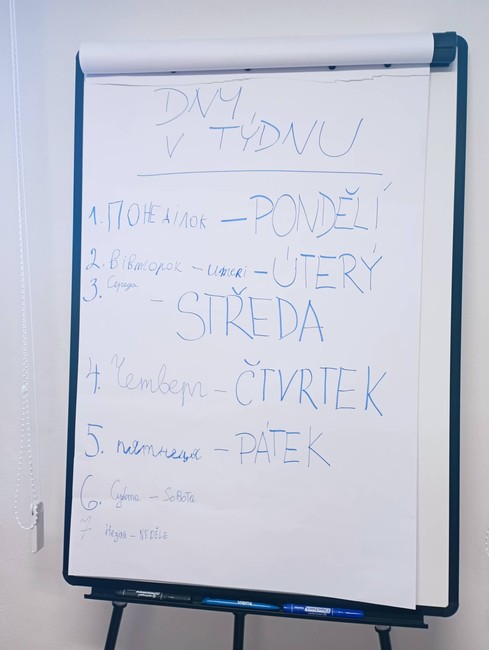 DNY
V TÝDNU
1. ПОНЕДІЛОК – PONDĚLÍ
2. Вівторок – – ÚTERÝ
3. Середа – STŘEDA
4. Четверг – ČTVRTEK
5. пятнеця – PÁTEK
6. Субота – SOBOTA
7 – NEDĚLE